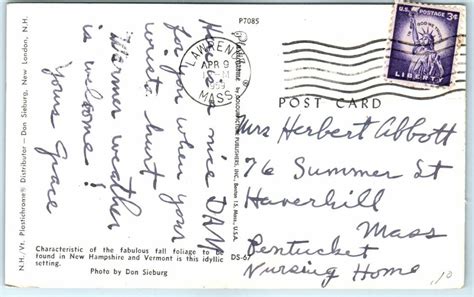 N.H./Vt. Plastichrome® Distributor — Don Sieburg, New London, N.H.
Here's a nice DAM
for you when your
wrists hurt
Warmer weather
is welcome!
Yours Grace
Characteristic of the fabulous fall foliage to be
found in New Hampshire and Vermont is this idyllic
setting.
Photo by Don Sieburg
P7085
PUBLISHERS, INC., Boston 15, Mass., U.S.A.
DS-67
LAWRENCE
APR 9
1959
MASS
U.S. POSTAGE 3¢
IN GOD WE TRUST
LIBERTY
POST CARD
Mrs Herbert Abbott
76 Summer St
Haverhill
Mass
Pentucket
Nursing Home
.10